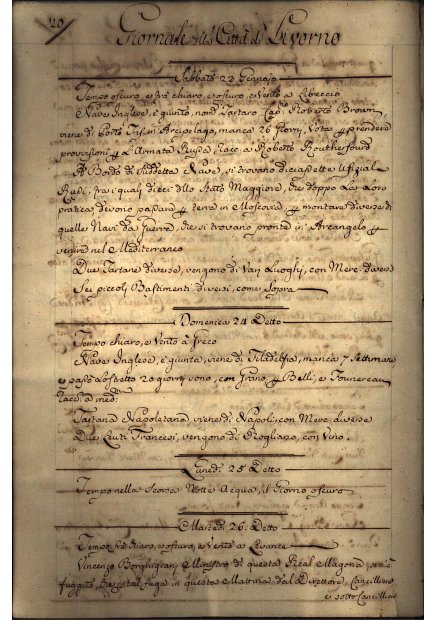 20
Giornale della Città di Livorno
Sabbato 23 Gennajo
Tempo oscuro, e frà chiaro, e oscuro, e Vento a Libeccio
Nave Inglese, è giunta, nom.ª Tartaro Cap. Roberto Brown,
viene di Porto in Arcipelago, manca 26 Giorni, Vota p prendere
provisioni p L'Armata Russa, racc. a Roberto Routherfourd
A Bordo di suddetta Nave, si trovano diciasette Ufiziali
Russi, fra i quali dieci dello Stato Maggiore, che doppo La Loro
pratica devono passare p terra in Moscovia p montare diverse di
quelle Navi da Guerra, che si trovano pronte in Arcangelo p
venire nel Mediterraneo
Due Tartane diverse, vengono di Varj Luoghi, con Merc. diverse
Sei piccoli Bastimenti diversi, come Sopra
Domenica 24 Detto
Tempo chiaro, e Vento a Greco
Nave Inglese, è giunta, viene di Filadelfia, manca 7 Settimane,
e passò lo stretto 20 giorni sono, con Grano p Belli, e Fourneau
racc. a med.
Tartana Napoletana, viene di Napoli, con Merc. diverse
Due Leuti Francesi, vengono di Rogliano, con Vino
Lunedì 25 Detto
Tempo nella Scorsa Notte Acqua, il Giorno oscuro
Martedì 26. Detto
Tempo frà chiaro, e oscuro, e Vento a Levante
Vincenzo Borghigiani, Ministro di questa Real Magona, se n'è
fuggito, fuga in questa Mattina dal Direttore, Cancelliere
e sotto Cancelliere